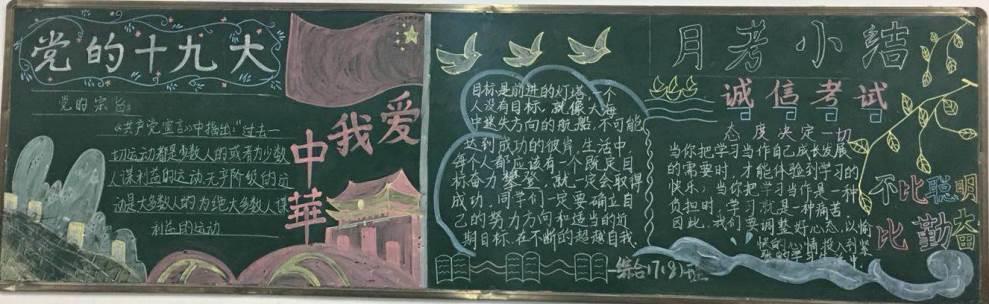 党的十九大
党的宗旨:
《共产党宣言》中指出:"过去一
切运动都是少数人的或者为少数
人谋利益的运动无产阶级的运
动是大多数人的为绝大多数人谋
利益的运动
爱
我
中
華
目标是前进的灯塔.一个
人没有目标,就像大海
中迷失方向的航船,不可能
达到成功的彼岸.生活中
每个人都应该有一个既定目
标奋力攀登,就一定会取得
成功.同学们一定要确立自
己的努力方向和适当的近
期目标.在不断的超越自我.
综合17(9)班
月考小结
诚信考试
态度决定一切
当你把学习当作自己成长发展
的需要时,才能体验到学习的
快乐;当你把学习当作是一种
负担时,学习就是一种痛苦
因此,我们要调整好心态,以愉
悦的心情投入到
不比聰明
比勤奋